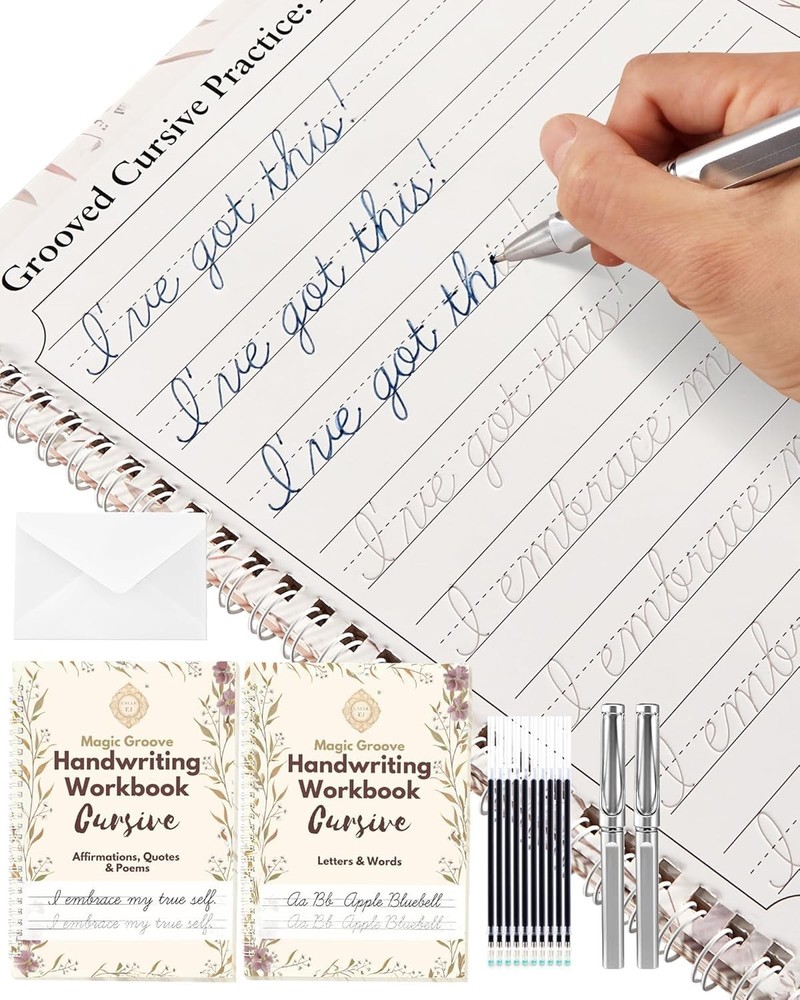 Grooved Cursive Practice:
I've got this!
I've got this!
I've got this!
I've got this!
I embrace
I embrace
I
Magic Groove
Handwriting
Workbook
Cursive
Affirmations, Quotes
& Poems
I embrace my true self.
I embrace my true self.
Magic Groove
Handwriting
Workbook
Cursive
Letters & Words
Aa Bb Apple Bluebell
Aa Bb Apple Bluebell